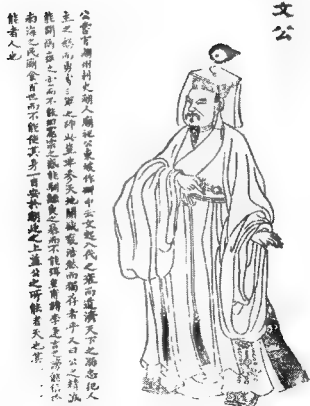 文公
公嘗官潮州刺史潮人廟祀公東坡作碑中云文起八代之衰而道濟天下之溺忠犯人
主之怒而勇奪三軍之帥此豈非參天地關盛衰浩然而獨存者乎又曰公之精誠
能開衡山之雲而不能回憲宗之惑能馴鱷魚之暴而不能弭皇甫鎛李逢吉之謗能信於
南海之民廟食百世而不能使其身一日安於朝廷之上蓋公之所能者天也其
能者人也